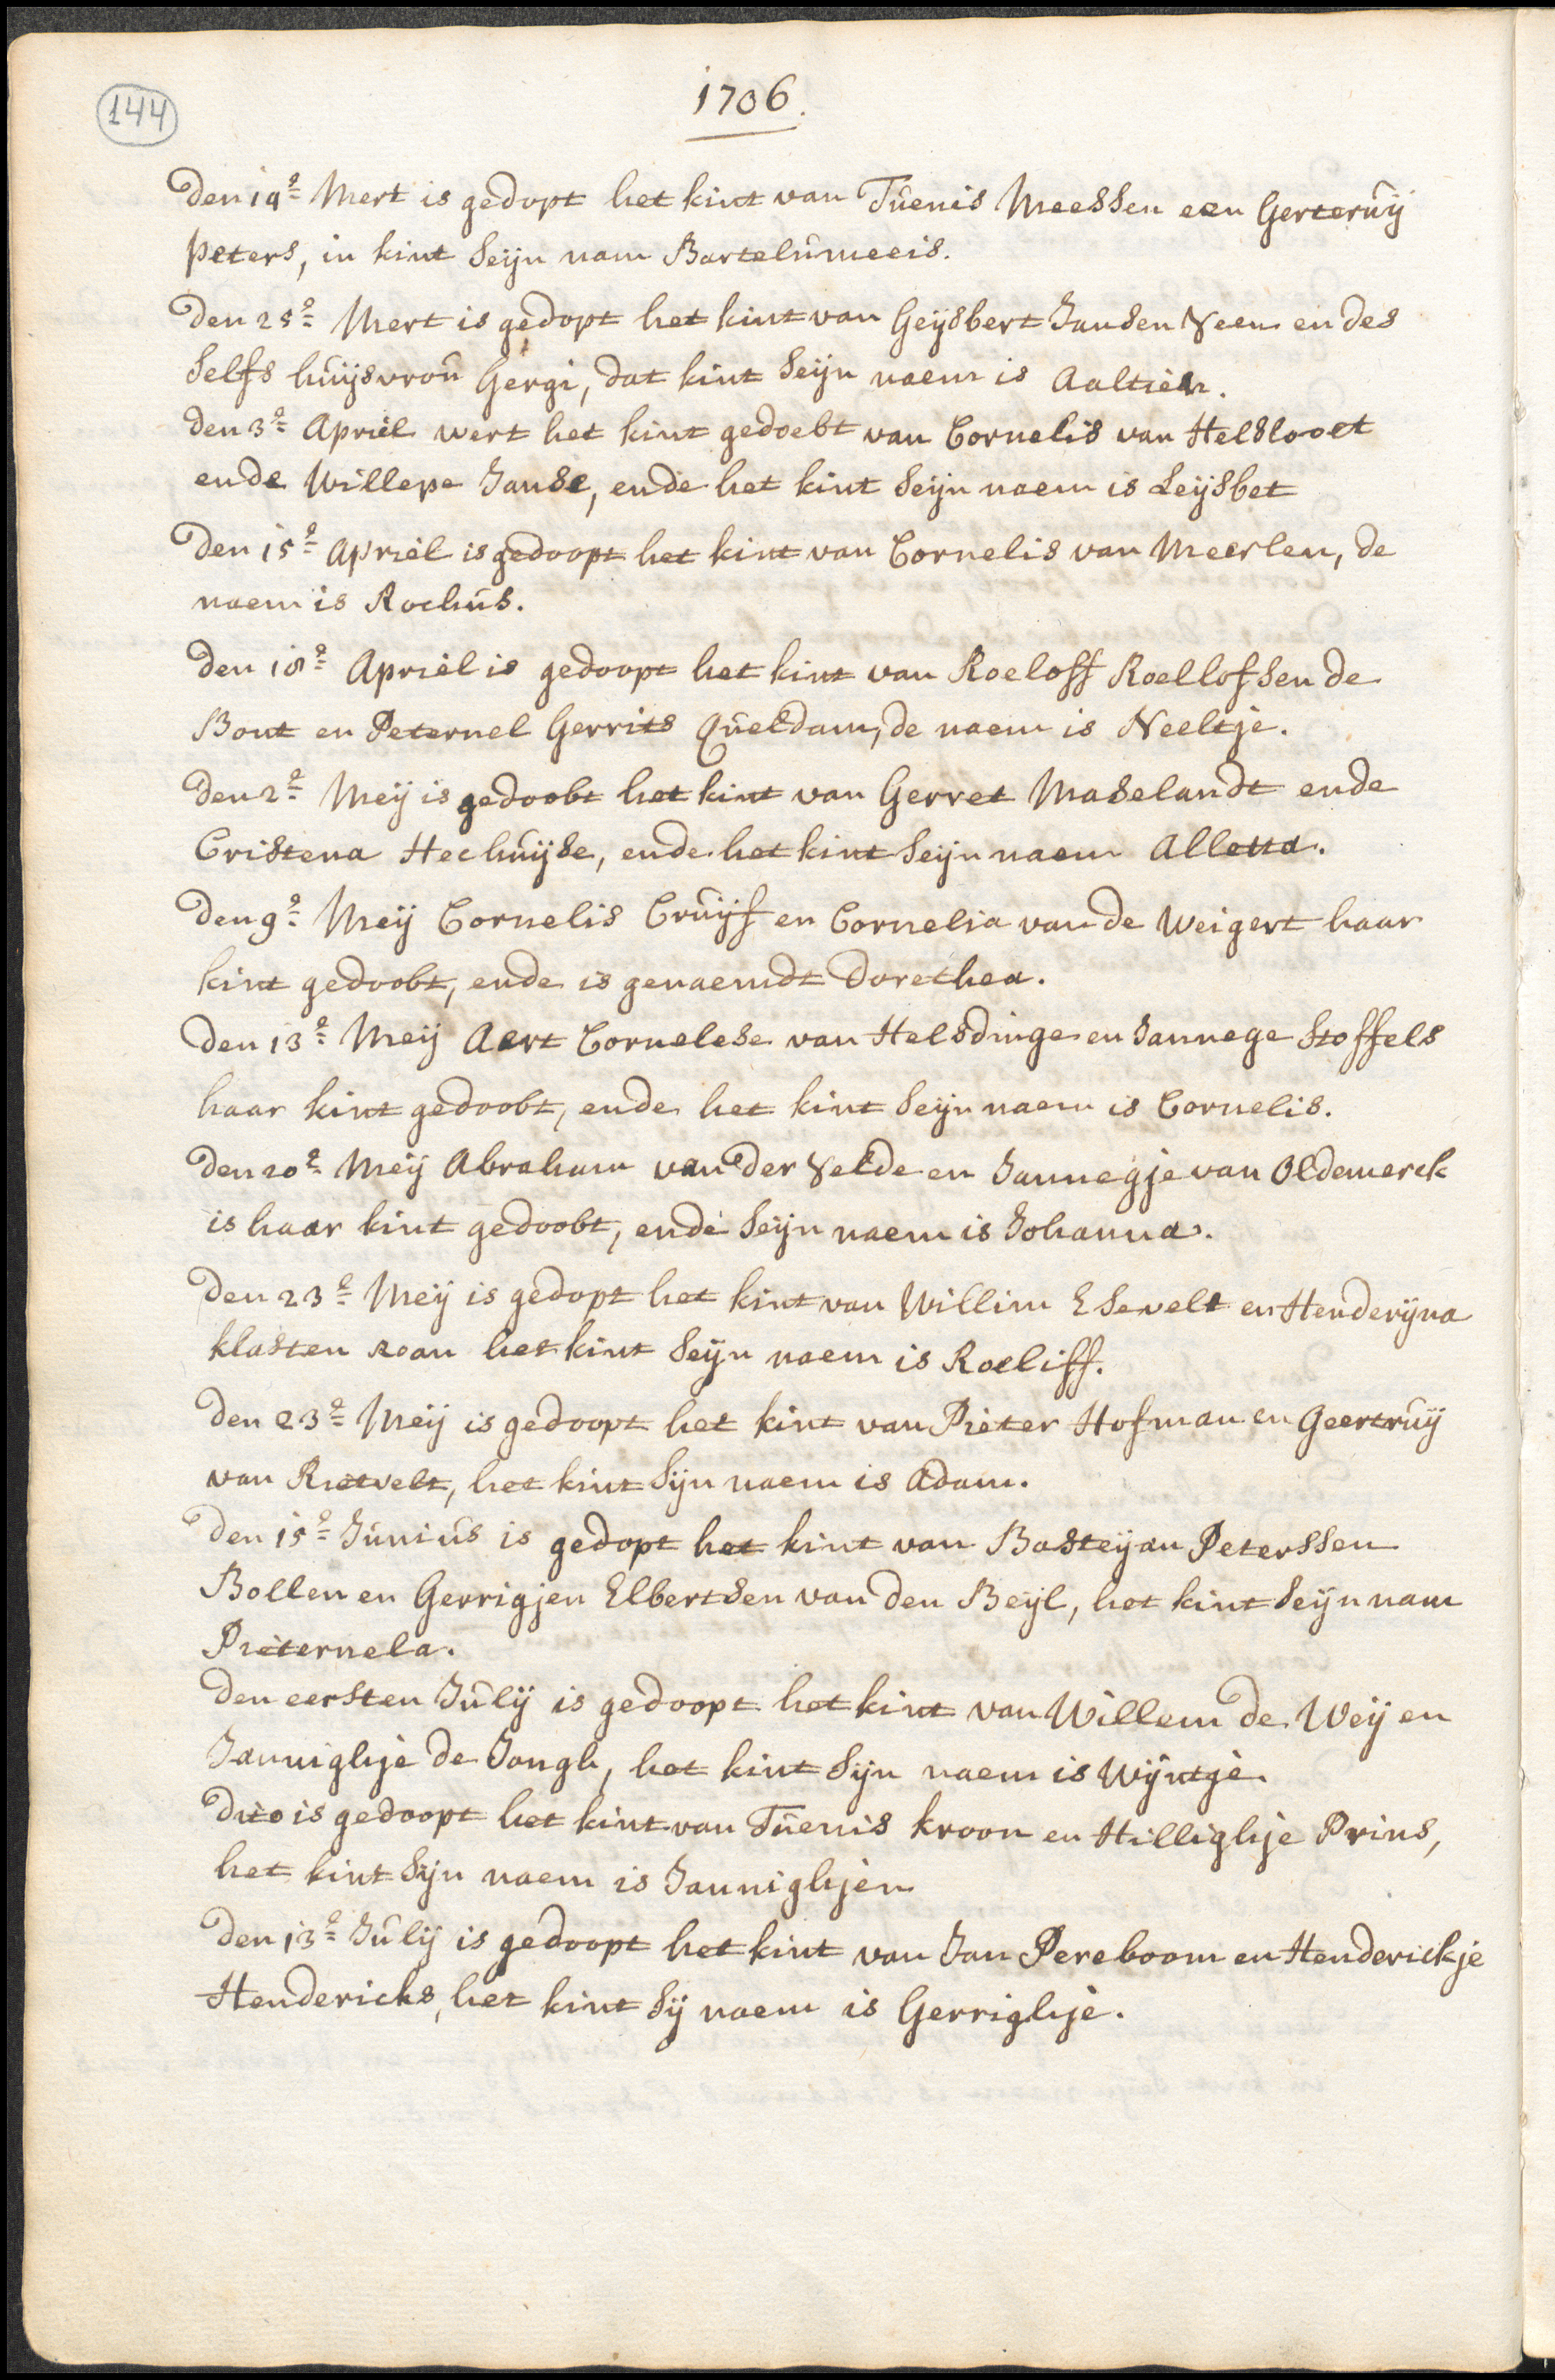 144
1706.
Den 19e Mert is gedopt het kint van Tuenis Meessen een Gerteruij
peters, in kint seijn nam Bartelumeeis.
Den 25e Mert is gedopt het kint van Geijsbert Jansen Veen en des
selfs huijsvrou Gergi, dat kint seijn naem is Aaltien.
den 3e Apriel wert het kint gedoebt van Cornelis van Helslooet
ende Willepe Janse, ende het kint seijn naem is Leijsbet
Den 15e Apriel is gedoopt het kint van Cornelis van Meerlen, de
naem is Rochus.
Den 18e Apriel is gedoopt het kint van Roeloff Roellofsen de
Bont en Peternel Gerrits Queldam, de naem is Neeltje.
Den 2e Meij is gedoobt het kint van Gerret Maselandt ende
Cristena Hechuijse, ende het kint seijn naem Alletta.
Den 9e Meij Cornelis Cruijf en Cornelia van de Weigert haar
kint gedoobt, ende is genaemdt Dorethea.
Den 13e Meij Aert Cornelese van Helsdinge en Jannege Stoffels
haar kint gedoobt, ende het kint seijn naem is Cornelis.
Den 20e Meij Abraham van der Velde en Jannegje van Oldemerck
is haar kint gedoobt, ende seijn naem is Johanna.
Den 23e Meij is gedopt het kint van Willim Esevelt en Henderijna
klasten roan het kint seijn naem is Roeliff.
Den 23e Meij is gedoopt het kint van Pieter Hofman en Geertruij
van Rietvelt, het kint sijn naem is Adam.
Den 15e Junius is gedopt het kint van Basteijan Peterssen
Bollen en Gerrigjen Elbertsen van den Beijl, het kint seijn nam
Pieternela.
Den eersten Julij is gedoopt het kint van Willem de Weij en
Janniglhje de Jongh, het kint sijn naem is Wijntje.
Dito is gedoopt het kint van Tuenis kroon en Hilliglhje Prins,
het kint sijn naem is Janniglhjen
Den 13e Julij is gedoopt het kint van Jan Pereboom en Henderickje
Hendericks, het kint sij naem is Gerriglhje.